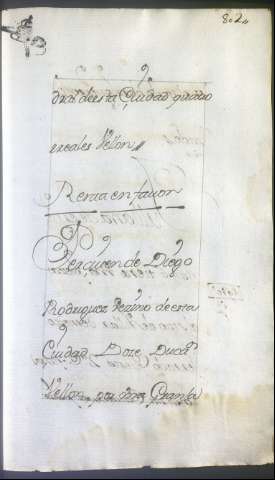 82
dra.l de esta Ciudad quatro
reales Vellon
Renta en favor
Perciven de Diego
Rodriguez Vezino de esta
Ciudad Doze Ducas
Vellon por una Granja